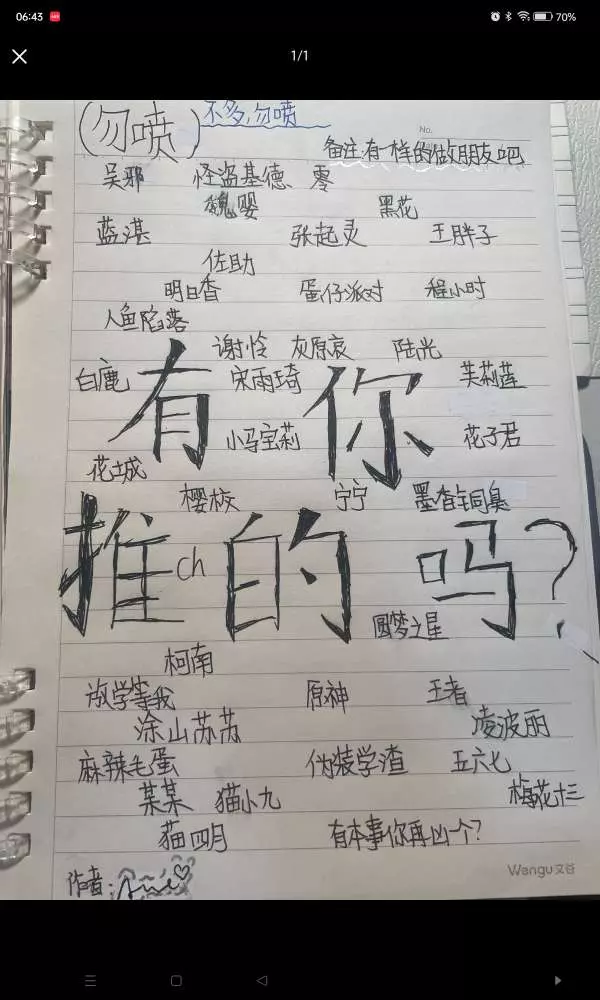 06:43 70%
1/1
(勿喷) 不多,勿喷
No.
备注:有一样的做朋友吧
吴邪 怪盗基德 零
魏婴 黑花
蓝湛 张起灵 王胖子
佐助
明日香 蛋仔派对 程小时
人鱼陷落
谢怜 灰原哀 陆光
白鹿 宋雨琦 芙莉莲
有你
小马宝莉 花子君
花城
樱桃 宁宁 墨香铜臭
推的吗?
ch
圆梦之星
柯南
放学等我 原神 王者
涂山苏苏 凌波丽
麻辣毛蛋 伪装学渣 五六七
某某 猫小九 梅花十三
猫四月 有本事你再凶一个?
作者:
Wengu文谷